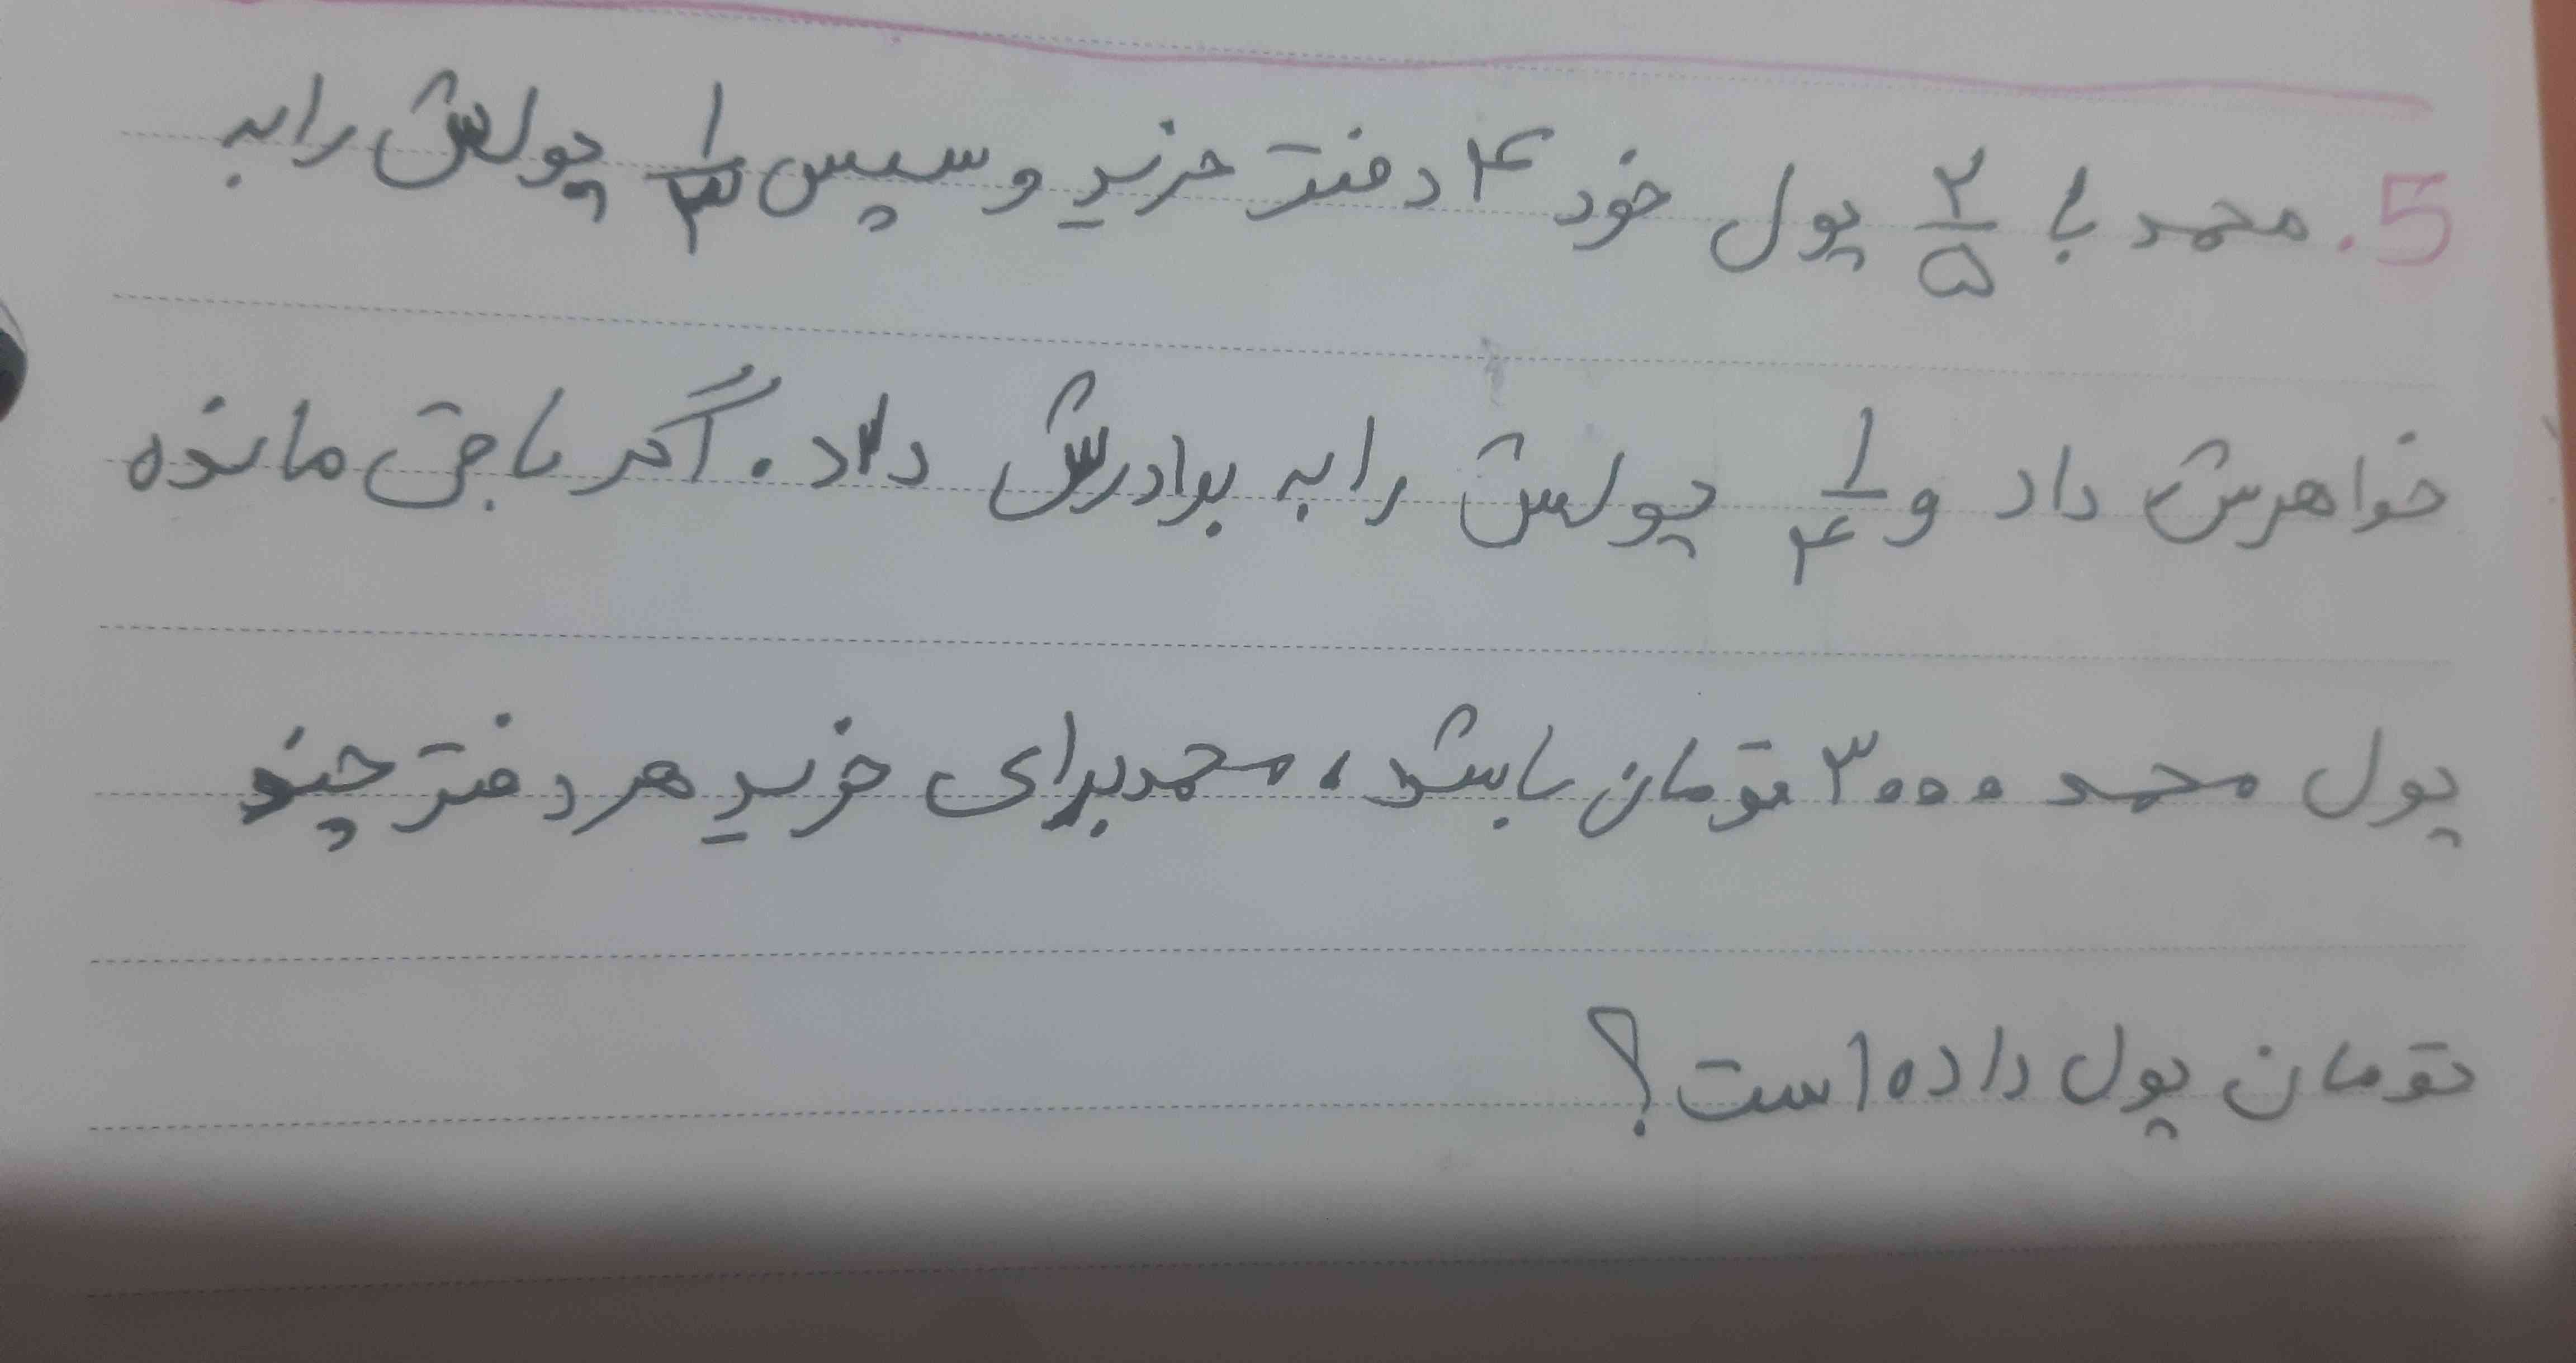 5. محمد با ۲/۵ پول خود ۴ دفتر خرید و سپس ۱/۳ پولش را به
خواهرش داد و ۱/۴ پولش را به برادرش داد. اگر باقی مانده
پول محمد ۳۰۰۰ تومان باشد، محمد برای خرید هر دفتر چند
تومان پول داده است؟